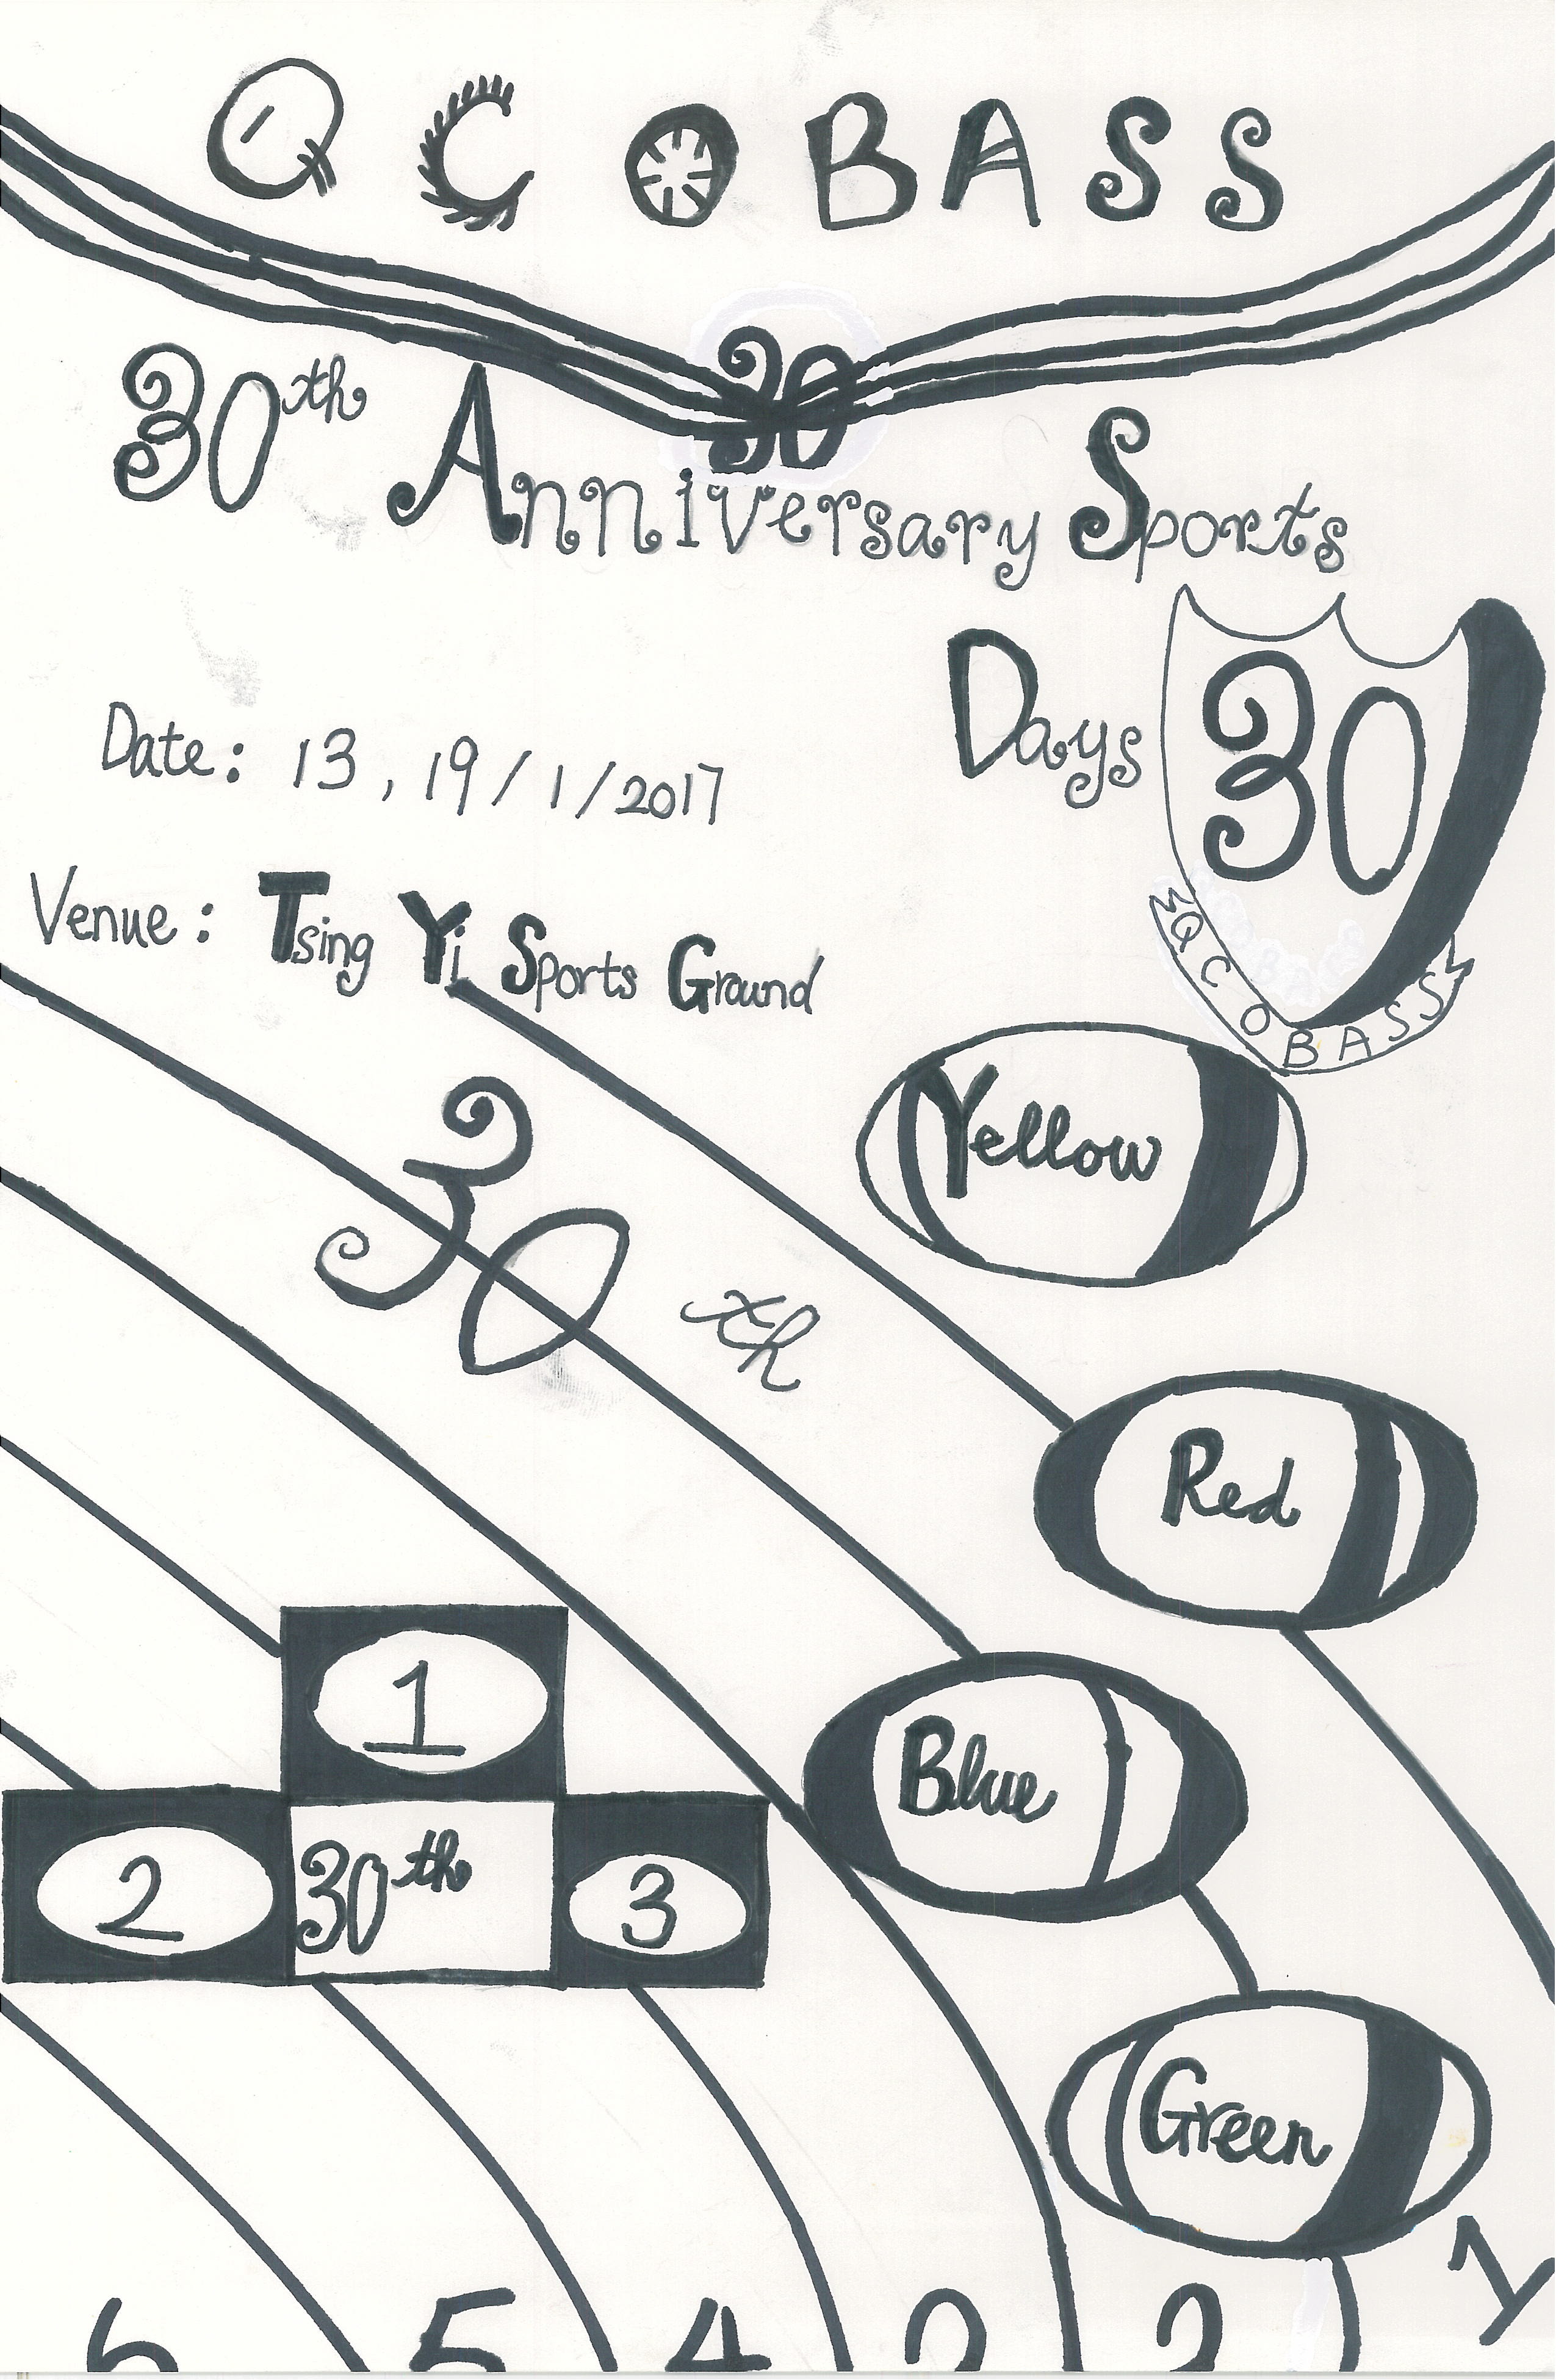 QCOBASS
30
30th Anniversary Sports
Days
30
QCOBASS
Date: 13, 19/1/2017
Venue: Tsing Yi Sports Ground
Yellow
30th
Red
1
Blue
2
30th
3
Green
6 5 4 2 1